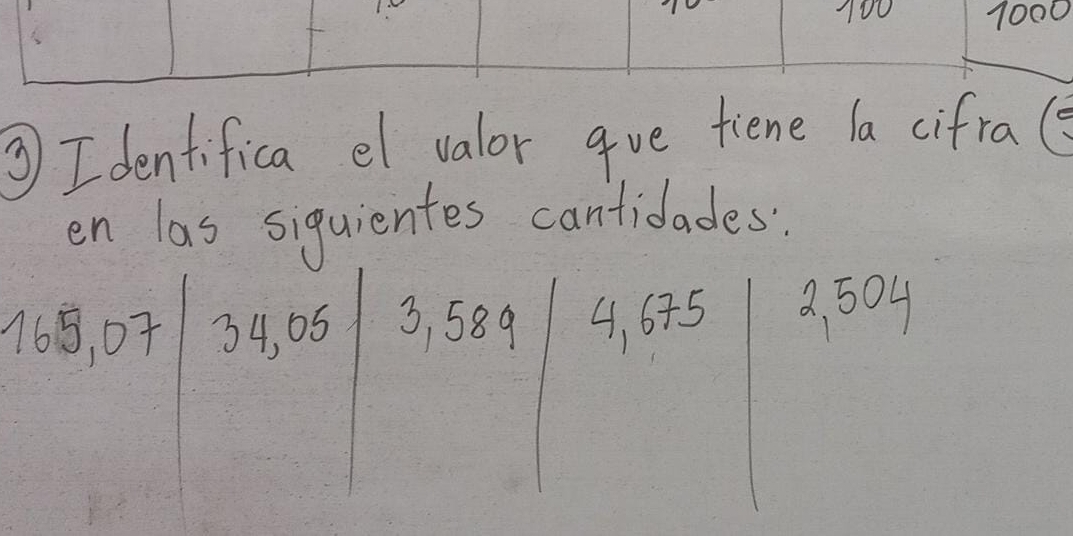 100 1000
③ Identifica el valor que tiene la cifra
en las siguientes cantidades:
165,07 | 34,05 | 3,589 | 4,675 | 2,504